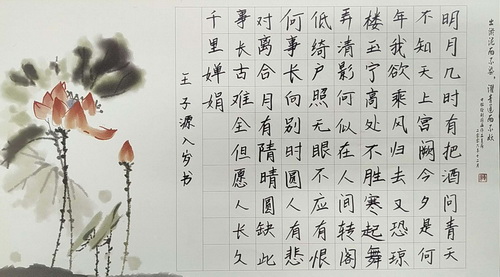 出淤泥而不染，濯清涟而不妖
明月几时有把酒问青天
不知天上宫阙今夕是何
年我欲乘风归去又恐琼
楼玉宇高处不胜寒起舞
弄清影何似在人间转阁
低绮户照无眠不应有恨
何事长向别时圆人有悲
欢离合月有阴晴圆缺此
事长古难全但愿人长久
千里婵娟
王子源八岁书